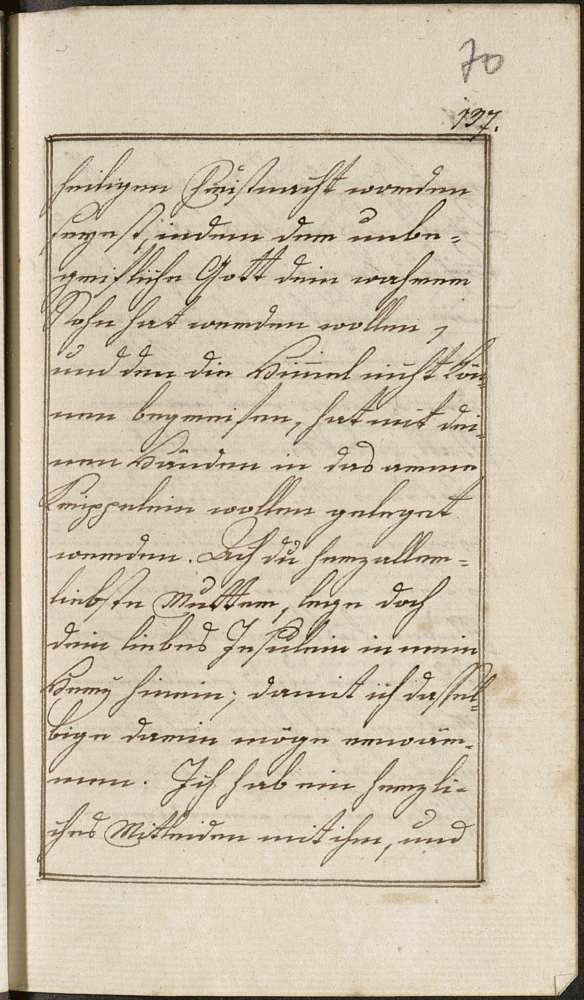 70
137.
heiligen Christnacht worden
seyest, indem der unbe-
greifliche Gott dein wahrer
Sohn hat werden wollen,
und den die Himel nicht kön-
nen begreifen, hat mit dei-
nen Händen in das arme
Krippelein wollen geleget
werden. Ach du herzaller-
liebste Mutter, lege doch
dein liebes Jesulein in mein
Herz hinein; damit ich dassel-
bige darin möge erwär-
men. Ich hab ein herzli-
ches Mitleiden mit ihm, und